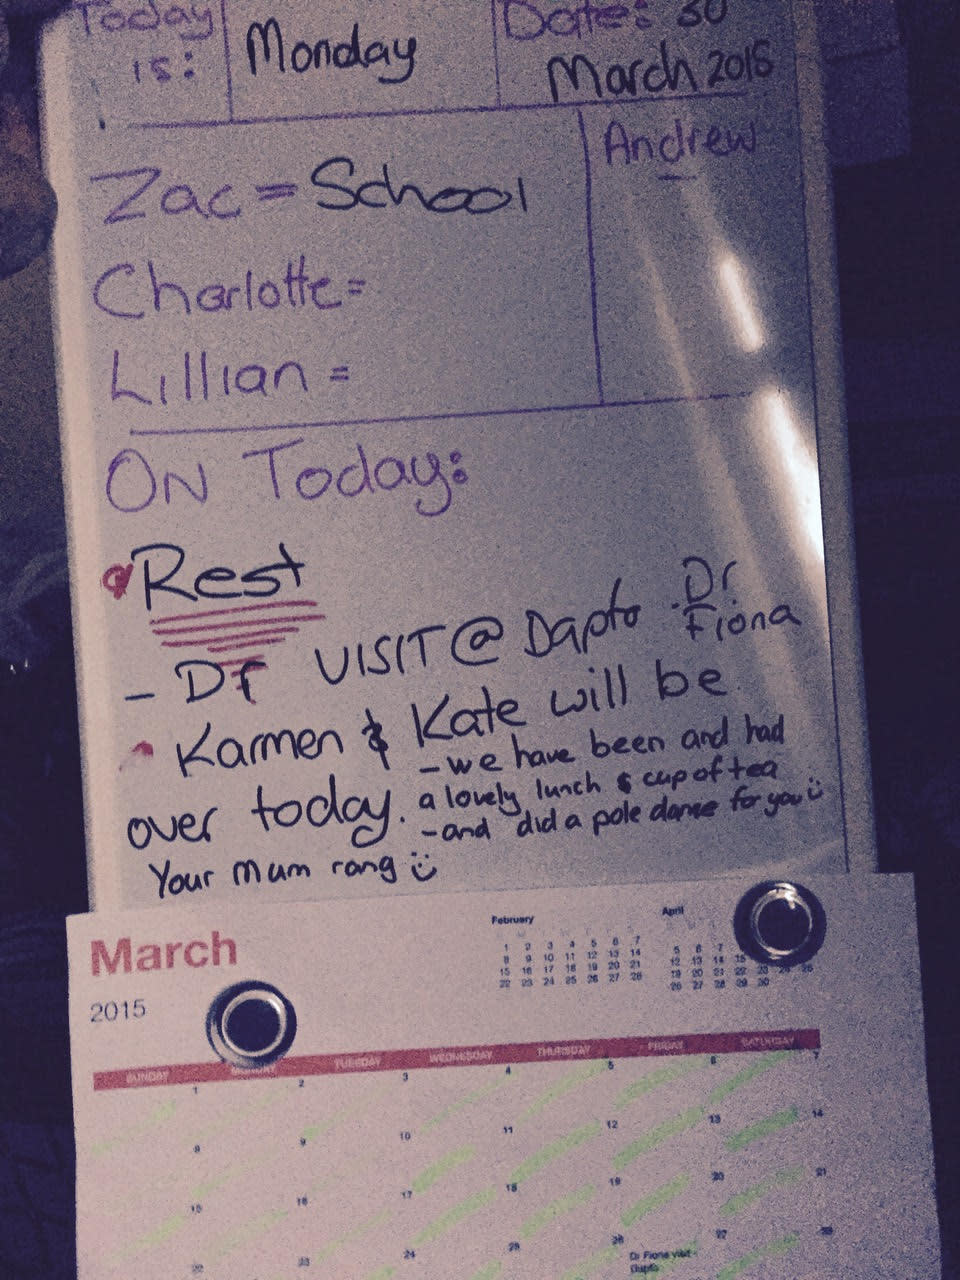 Today is: Monday Date: 30 March 2015
Andrew
Zac = School
Charlotte =
Lillian =
ON Today:
Rest
- Dr VISIT @ Dapto Dr Fiona
Karmen & Kate will be
over today.
- we have been and had
a lovely lunch & cup of tea
- and did a pole dance for you
Your Mum rang
March
2015
February
1 2 3 4 5 6 7
8 9 10 11 12 13 14
15 16 17 18 19 20 21
22 23 24 25 26 27 28
April
5 6 7
12 13 14 15
19 20 21 22 23 24 25
26 27 28 29 30
SUNDAY MONDAY TUESDAY WEDNESDAY THURSDAY FRIDAY SATURDAY
1 2 3 4 5 6 7
8 9 10 11 12 13 14
15 16 17 18 19 20 21
22 23 24 25 26 27 28
Dr Fiona visit -
Dapto